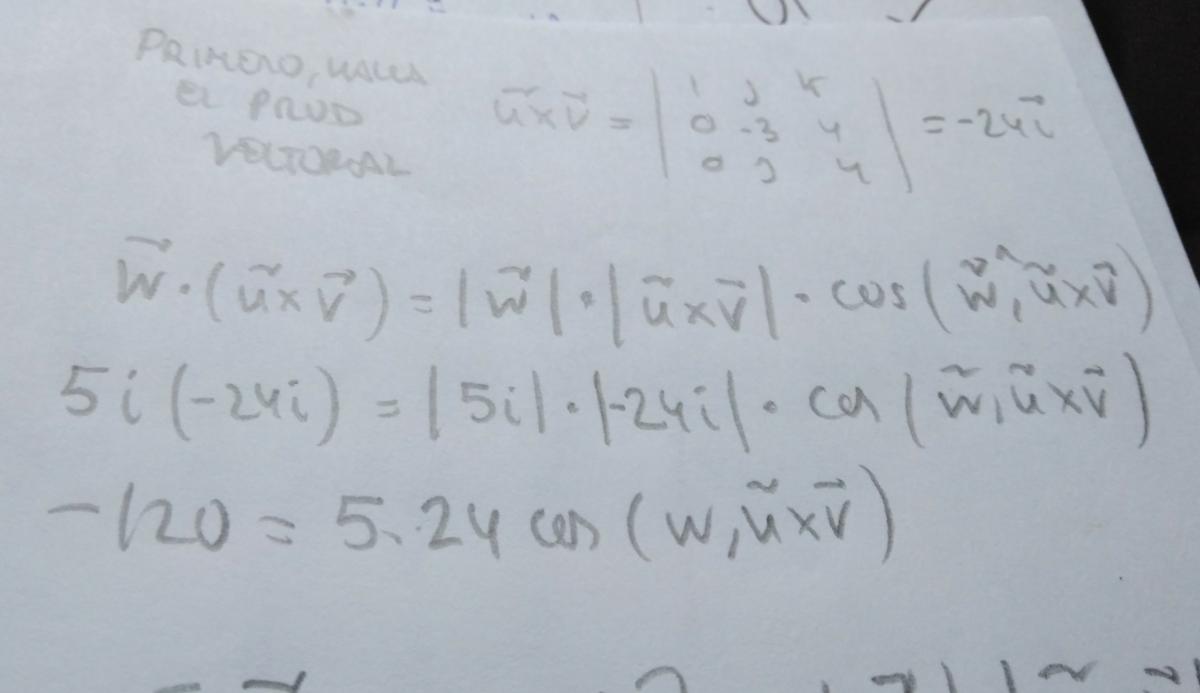 PRIMERO, HALLA
EL PROD
VECTORIAL
u⃗xv⃗ = | i j k
0 -3 4
0 3 4 | = -24i⃗
w⃗·(u⃗xv⃗) = |w⃗|·|u⃗xv⃗|·cos(w⃗,u⃗xv⃗)
5i(-24i) = |5i|·|-24i|·cos(w⃗,u⃗xv⃗)
-120 = 5·24 cos(w,u⃗xv⃗)